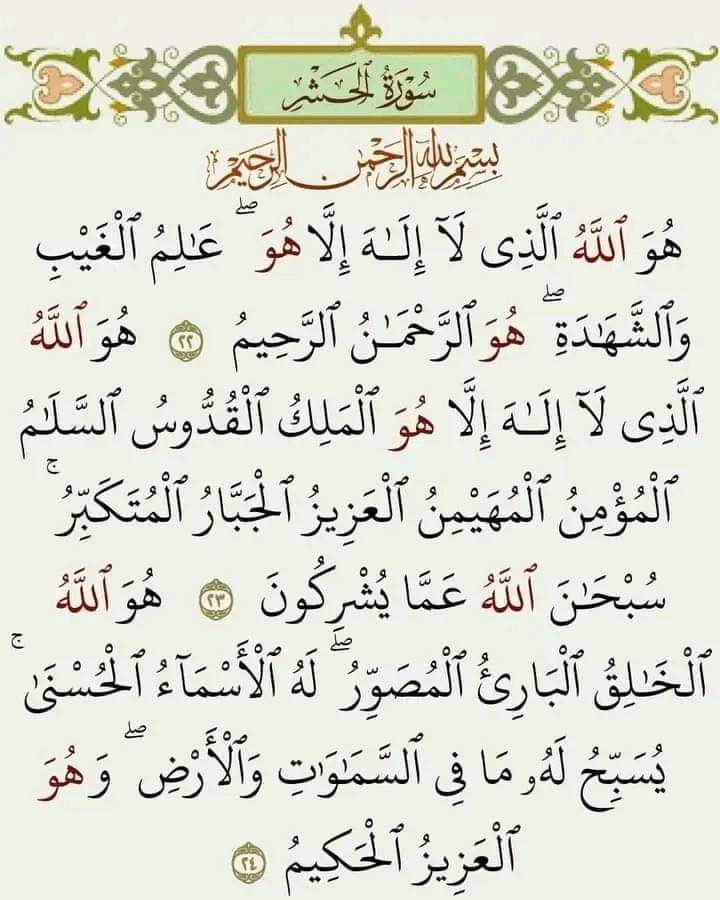 سُورَةُ ٱلْحَشْرِ
بِسْمِ ٱللَّهِ ٱلرَّحْمَٰنِ ٱلرَّحِيمِ
هُوَ ٱللَّهُ ٱلَّذِى لَآ إِلَـٰهَ إِلَّا هُوَ ۖ عَـٰلِمُ ٱلْغَيْبِ
وَٱلشَّهَـٰدَةِ ۖ هُوَ ٱلرَّحْمَـٰنُ ٱلرَّحِيمُ ٢٢ هُوَ ٱللَّهُ
ٱلَّذِى لَآ إِلَـٰهَ إِلَّا هُوَ ٱلْمَلِكُ ٱلْقُدُّوسُ ٱلسَّلَـٰمُ
ٱلْمُؤْمِنُ ٱلْمُهَيْمِنُ ٱلْعَزِيزُ ٱلْجَبَّارُ ٱلْمُتَكَبِّرُ ۚ
سُبْحَـٰنَ ٱللَّهِ عَمَّا يُشْرِكُونَ ٢٣ هُوَ ٱللَّهُ
ٱلْخَـٰلِقُ ٱلْبَارِئُ ٱلْمُصَوِّرُ ۖ لَهُ ٱلْأَسْمَآءُ ٱلْحُسْنَىٰ ۚ
يُسَبِّحُ لَهُۥ مَا فِى ٱلسَّمَـٰوَٰتِ وَٱلْأَرْضِ ۖ وَهُوَ
ٱلْعَزِيزُ ٱلْحَكِيمُ ٢٤